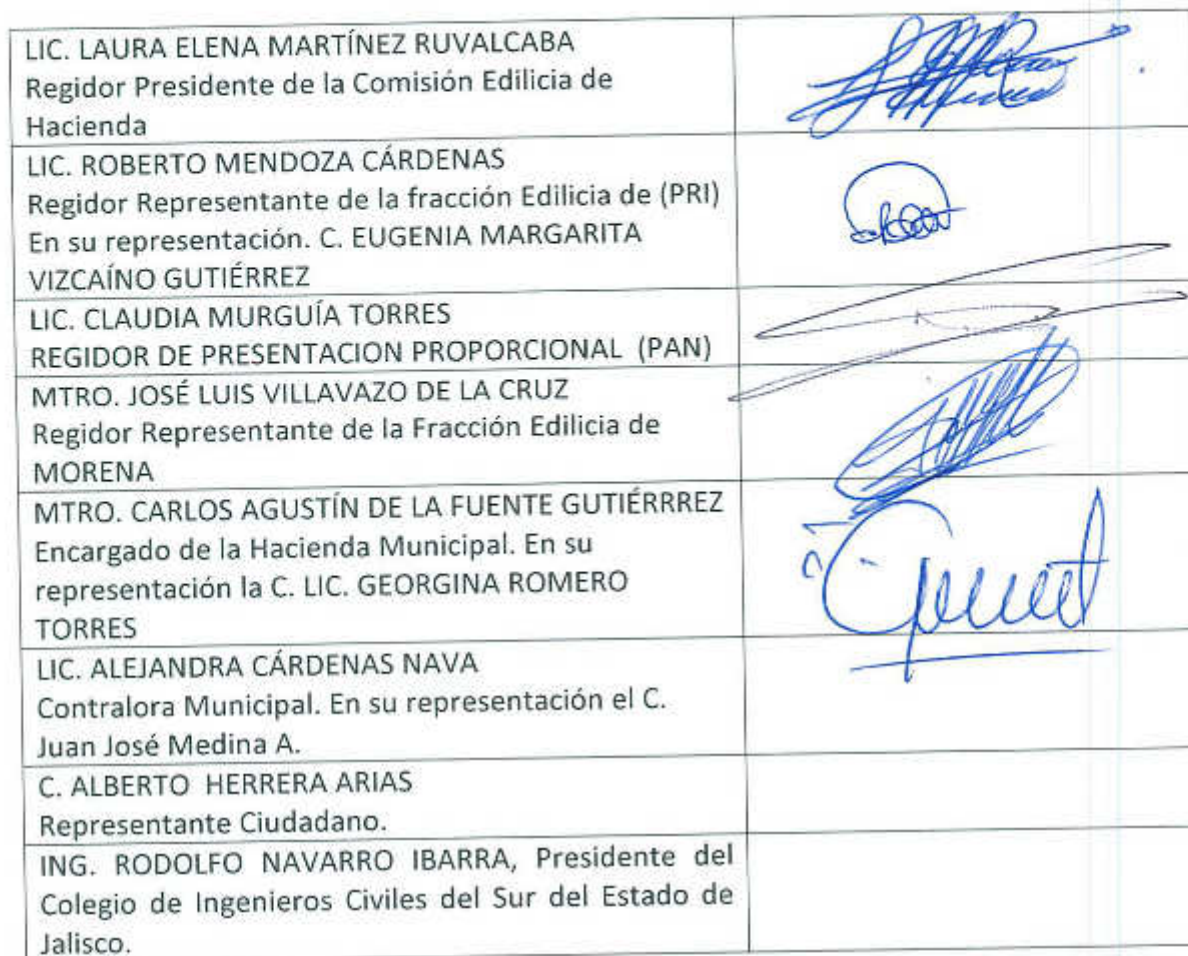 LIC. LAURA ELENA MARTÍNEZ RUVALCABA
Regidor Presidente de la Comisión Edilicia de
Hacienda
LIC. ROBERTO MENDOZA CÁRDENAS
Regidor Representante de la fracción Edilicia de (PRI)
En su representación. C. EUGENIA MARGARITA
VIZCAÍNO GUTIÉRREZ
LIC. CLAUDIA MURGUÍA TORRES
REGIDOR DE PRESENTACION PROPORCIONAL (PAN)
MTRO. JOSÉ LUIS VILLAVAZO DE LA CRUZ
Regidor Representante de la Fracción Edilicia de
MORENA
MTRO. CARLOS AGUSTÍN DE LA FUENTE GUTIÉRRREZ
Encargado de la Hacienda Municipal. En su
representación la C. LIC. GEORGINA ROMERO
TORRES
LIC. ALEJANDRA CÁRDENAS NAVA
Contralora Municipal. En su representación el C.
Juan José Medina A.
C. ALBERTO HERRERA ARIAS
Representante Ciudadano.
ING. RODOLFO NAVARRO IBARRA, Presidente del
Colegio de Ingenieros Civiles del Sur del Estado de
Jalisco.